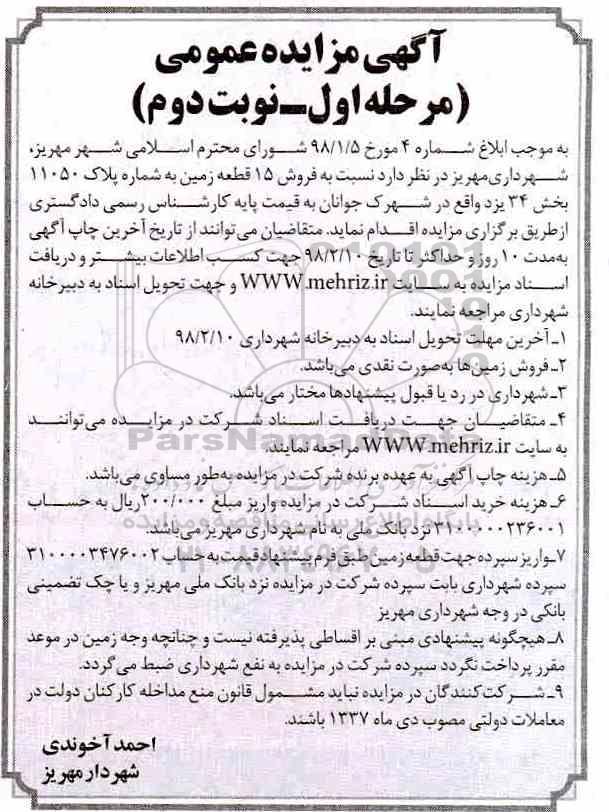 آگهی مزایده عمومی
(مرحله اول ـ نوبت دوم)
به موجب ابلاغ شماره ۴ مورخ ۹۸/۱/۵ شورای محترم اسلامی شهر مهریز،
شهرداری مهریز در نظر دارد نسبت به فروش ۱۵ قطعه زمین به شماره پلاک ۱۱۰۵۰
بخش ۳۴ یزد واقع در شهرک جوانان به قیمت پایه کارشناس رسمی دادگستری
از طریق برگزاری مزایده اقدام نماید. متقاضیان می‌توانند از تاریخ آخرین چاپ آگهی
به‌مدت ۱۰ روز و حداکثر تا تاریخ ۹۸/۲/۱۰ جهت کسب اطلاعات بیشتر و دریافت
اسناد مزایده به سایت WWW.mehriz.ir و جهت تحویل اسناد به دبیرخانه
شهرداری مراجعه نمایند.
۱ـ آخرین مهلت تحویل اسناد به دبیرخانه شهرداری ۹۸/۲/۱۰
۲ـ فروش زمین‌ها به‌صورت نقدی می‌باشد.
۳ـ شهرداری در رد یا قبول پیشنهادها مختار می‌باشد.
۴ـ متقاضیان جهت دریافت اسناد شرکت در مزایده می‌توانند
به سایت WWW.mehriz.ir مراجعه نمایند.
۵ـ هزینه چاپ آگهی به عهده برنده شرکت در مزایده به‌طور مساوی می‌باشد.
۶ـ هزینه خرید اسناد شرکت در مزایده واریز مبلغ ۲۰۰/۰۰۰ ریال به حساب
۳۱۰۰۰۰۰۲۳۶۰۰۱ نزد بانک ملی به نام شهرداری مهریز می‌باشد.
۷ـ واریز سپرده جهت قطعه زمین طبق فرم پیشنهاد قیمت به حساب ۳۱۰۰۰۰۳۴۷۶۰۰۲
سپرده شهرداری بابت سپرده شرکت در مزایده نزد بانک ملی مهریز و یا چک تضمینی
بانکی در وجه شهرداری مهریز
۸ـ هیچگونه پیشنهادی مبنی بر اقساطی پذیرفته نیست و چنانچه وجه زمین در موعد
مقرر پرداخت نگردد سپرده شرکت در مزایده به نفع شهرداری ضبط می‌گردد.
۹ـ شرکت‌کنندگان در مزایده نباید مشمول قانون منع مداخله کارکنان دولت در
معاملات دولتی مصوب دی ماه ۱۳۳۷ باشند.
احمد آخوندی
شهردار مهریز
ParsNamadData